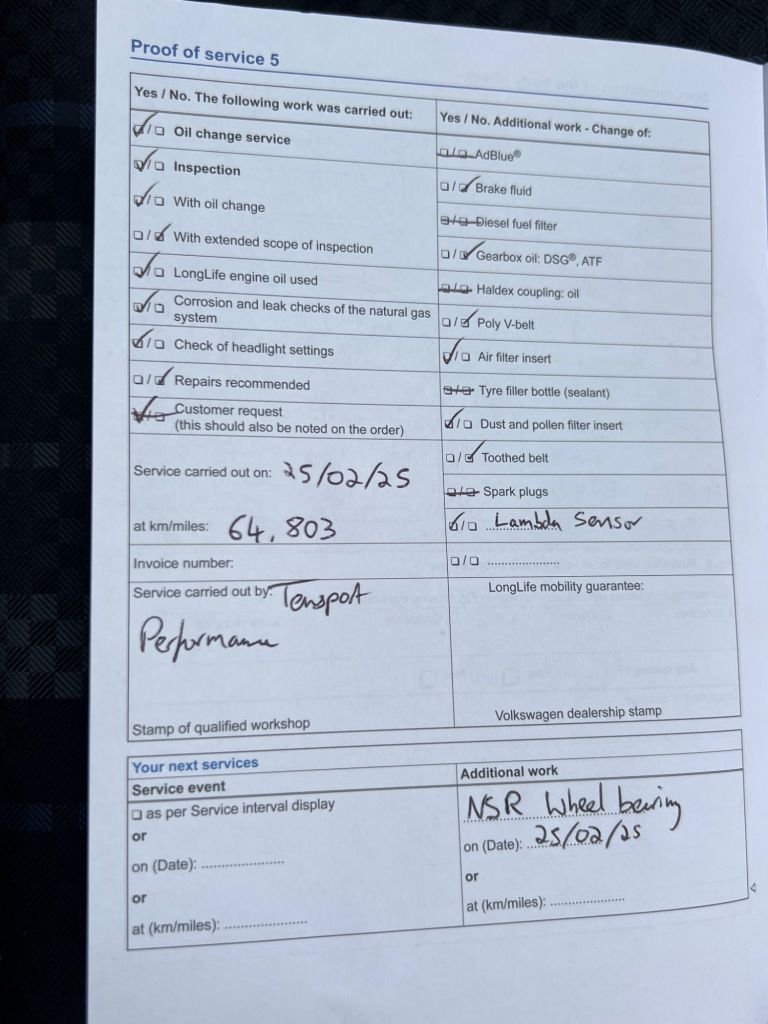 Proof of service 5
Yes / No. The following work was carried out:
Oil change service
Inspection
With oil change
With extended scope of inspection
LongLife engine oil used
Corrosion and leak checks of the natural gas
system
Check of headlight settings
Repairs recommended
Customer request
(this should also be noted on the order)
Service carried out on: 25/02/25
at km/miles: 64,803
Invoice number:
Service carried out by:
Performance
Stamp of qualified workshop
Yes / No. Additional work - Change of:
AdBlue®
Brake fluid
Diesel fuel filter
Gearbox oil: DSG®, ATF
Haldex coupling: oil
Poly V-belt
Air filter insert
Tyre filler bottle (sealant)
Dust and pollen filter insert
Toothed belt
Spark plugs
Lambda Sensor
LongLife mobility guarantee:
Volkswagen dealership stamp
Your next services
Service event
as per Service interval display
or
on (Date):
or
at (km/miles):
Additional work
NSR Wheel bearing
on (Date): 25/02/25
or
at (km/miles):